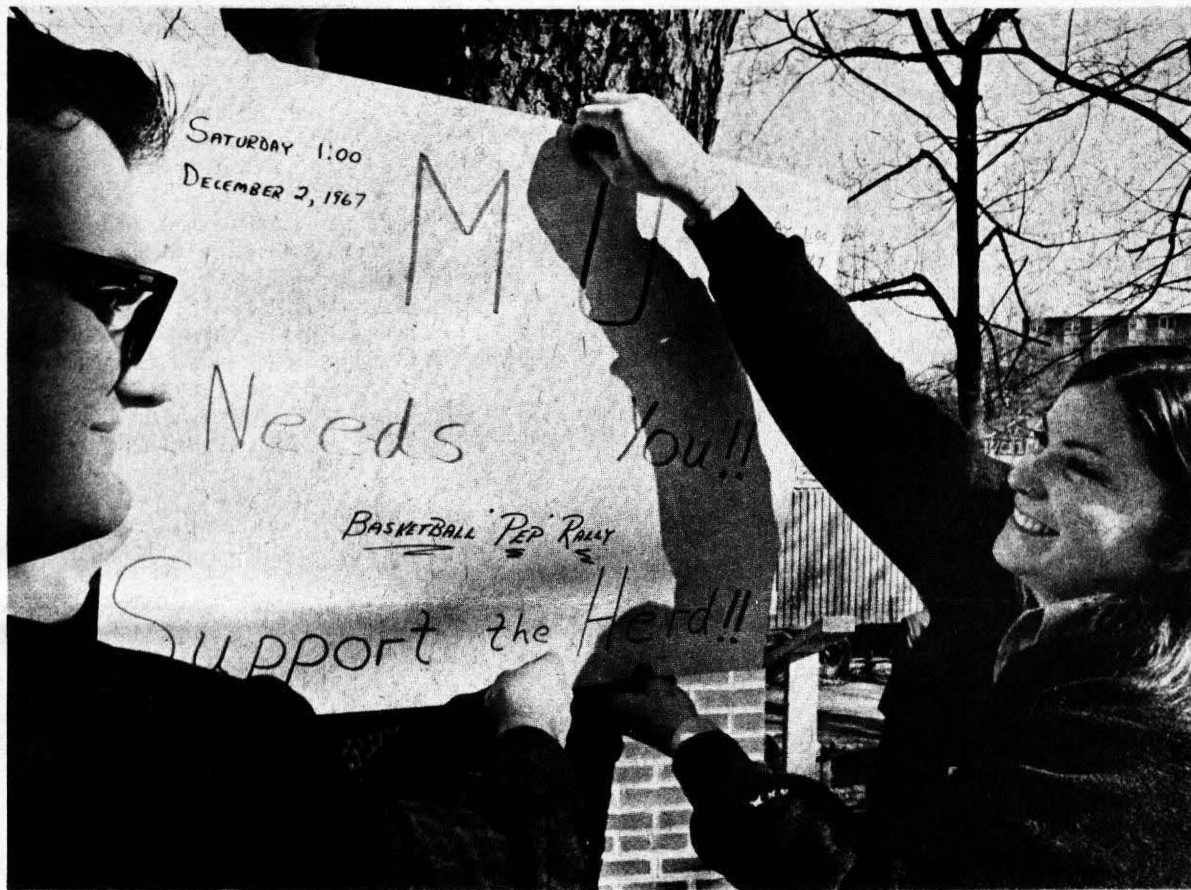 SATURDAY 1:00
DECEMBER 2, 1967
MU
Needs You!!
BASKETBALL "PEP" RALLY
Support the Herd!!
1:00